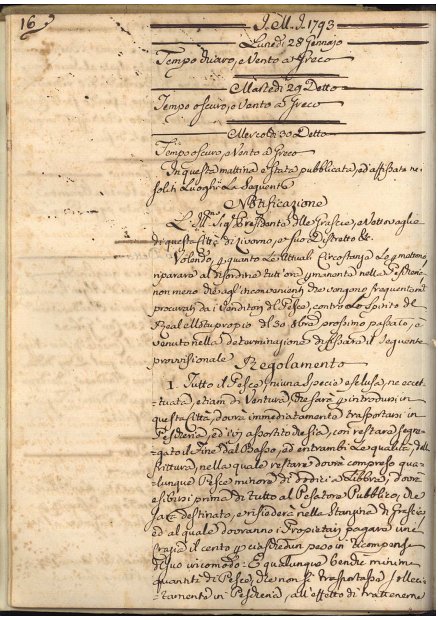 16
J. M. J. 1793
Lunedì 28 Gennajo
Tempo chiaro, e Vento a Greco
Martedì 29 Detto
Tempo oscuro, e Vento a Greco
Mercoldì 30 Detto
Tempo oscuro, e Vento a Greco
In questa mattina è stata pubblicata, ed affissata ne'
soliti Luoghi La Seguente
Notificazione
L'Ill.mo Sig.r Presidente delle Grascie, e Vettovaglie
di questa Città di Livorno, e suo Distretto &.
Volendo, per quanto Le attuali Circostanze Lo permettono
riparare al disordine tutt'ora permanente nella Pescheria
non meno che agl'inconvenienti che vengono frequentem.
procurati da i Venditori del Pesce, contro Lo Spirito del
Real Motuproprio del 30 8bre prossimo passato, è
venuto nella determinazione di fissare il seguente
provvisionale Regolamento
1. Tutto il Pesce, niuna Specie esclusa, nè eccet-
tuata, etiam di Ventura, che sarà per introdursi in
questa Città, dovrà immediatamente trasportarsi in
Pescheria, ed ivi a partito che sia, con restare segre-
gato il Fine dal Basso, ed entrambi Le qualità dalla
frittura, nella quale restare dovrà compreso qua-
lunque Pesce minore di dodici a Libbra, dovrà
esibirsi prima di tutto al Pesatore Pubblico, che
sarà destinato, e risiederà nella Stanzina di Grascia,
ed al quale dovranno i Propietarj pagare una
crazia il cento per ciaschedun peso in ricompensa
di suo incomodo: E qualunque benchè minima
quantità di Pesce, che non si trasportasse solleci-
tamente in Pescheria, all'effetto di trattenerne